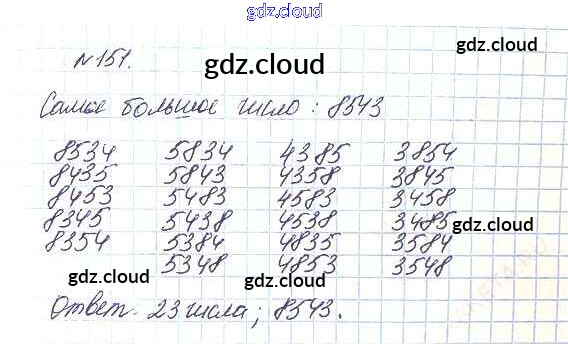 gdz.cloud
№151.
gdz.cloud
gdz.cloud
Самое большое число: 8543
8534 5834 4385 3854
8435 5843 4358 3845
8453 5483 4583 3458
8345 5438 4538 3485
8354 5384 4835 3584
5348 4853 3548
gdz.cloud
gdz.cloud
gdz.cloud
Ответ. 23 числа; 8543.
gdz.cloud